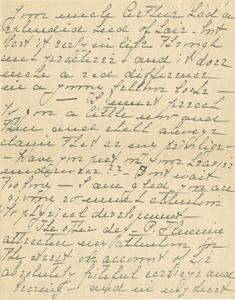 Your uncle Arthur had a
splendid head of hair - but
lost it early in life through
and it does
make a real difference
in a young fellow's looks -
I must preach
to you a little now and
then and shall always
claim that as my privilege -
- Have you put on your heavier
underwear?? Do not wait
too long - I am glad you are
giving so much attention
to physical development -
The other day - P. Fleming
attracted my attention for
the event on account of his
absolutely
and in my heart